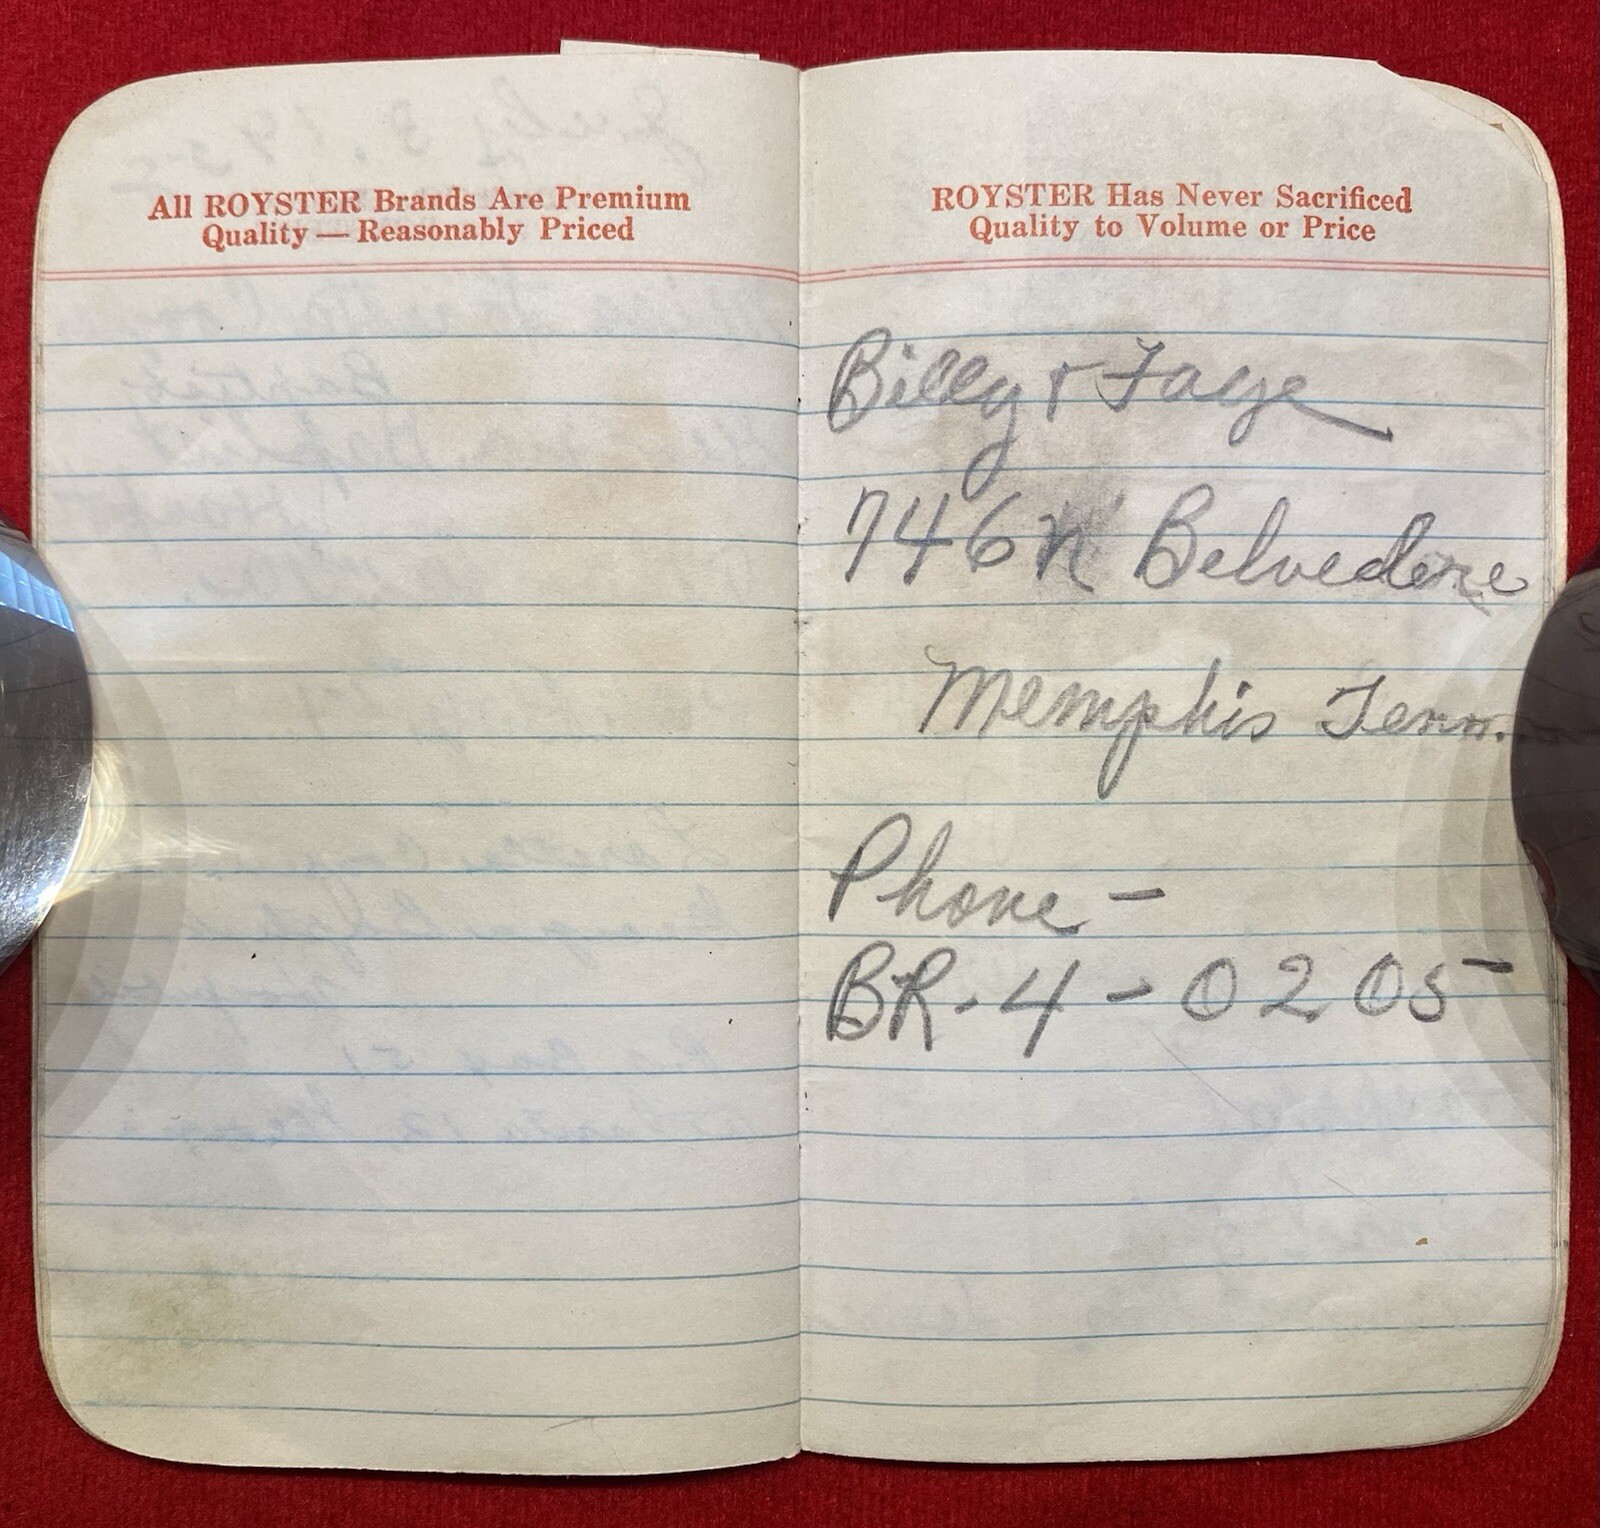 All ROYSTER Brands Are Premium
Quality — Reasonably Priced
ROYSTER Has Never Sacrificed
Quality to Volume or Price
Billy & Faye
746 N Belvedere
Memphis Tenn.
Phone -
BR-4-0205